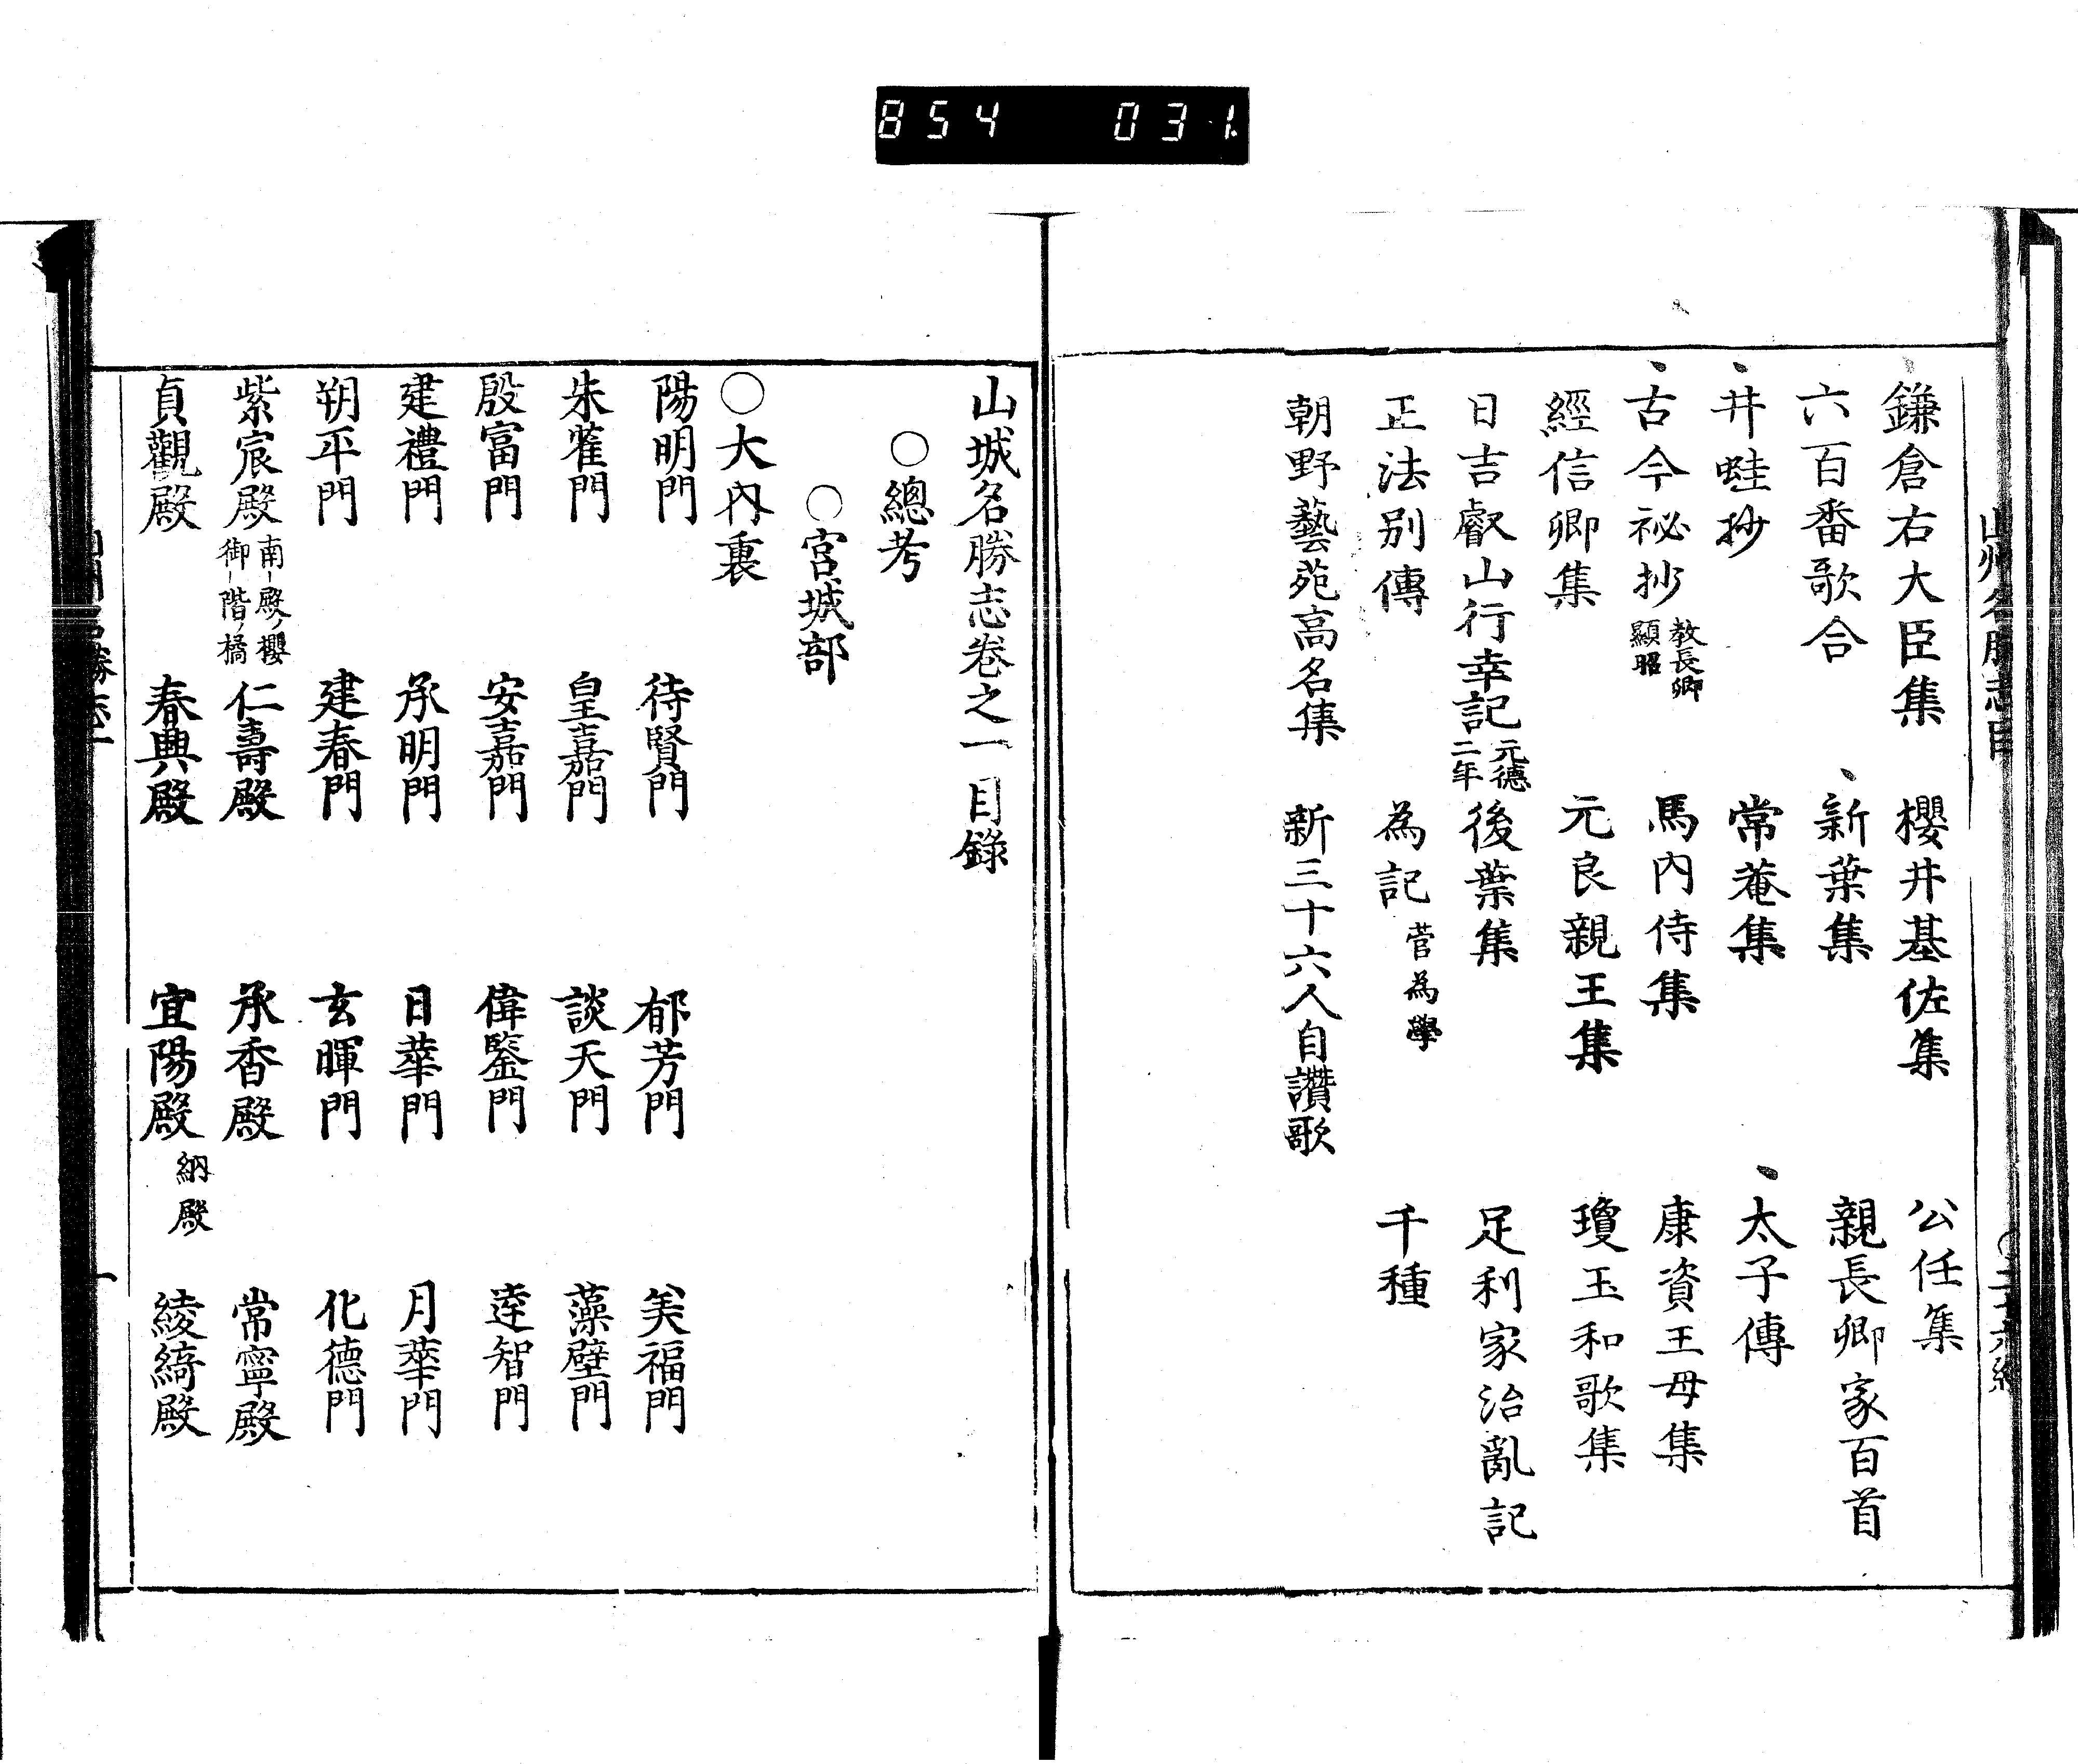 854 031
鎌倉右大臣集 櫻井基佐集 公任集
六百番歌合 新葉集 親長卿家百首
井蛙抄 常菴集 太子傳
古今祕抄 教長卿 顯昭 馬内侍集 康資王母集
經信卿集 元良親王集 瓊玉和歌集
日吉叡山行幸記 元德 二年 後葉集 足利家治亂記
正法別傳 為記 菅為學 千種
朝野藝苑高名集 新三十六人自讚歌
山城名勝志卷之一目錄
○總考
○宮城部
○大內裏
陽明門 待賢門 郁芳門 美福門
朱雀門 皇嘉門 談天門 藻壁門
殷富門 安嘉門 偉鑒門 達智門
建禮門 承明門 日華門 月華門
朔平門 建春門 玄暉門 化德門
紫宸殿 南殿ノ櫻 御階ノ橘 仁壽殿 承香殿 常寧殿
貞觀殿 春興殿 宜陽殿 納殿 綾綺殿